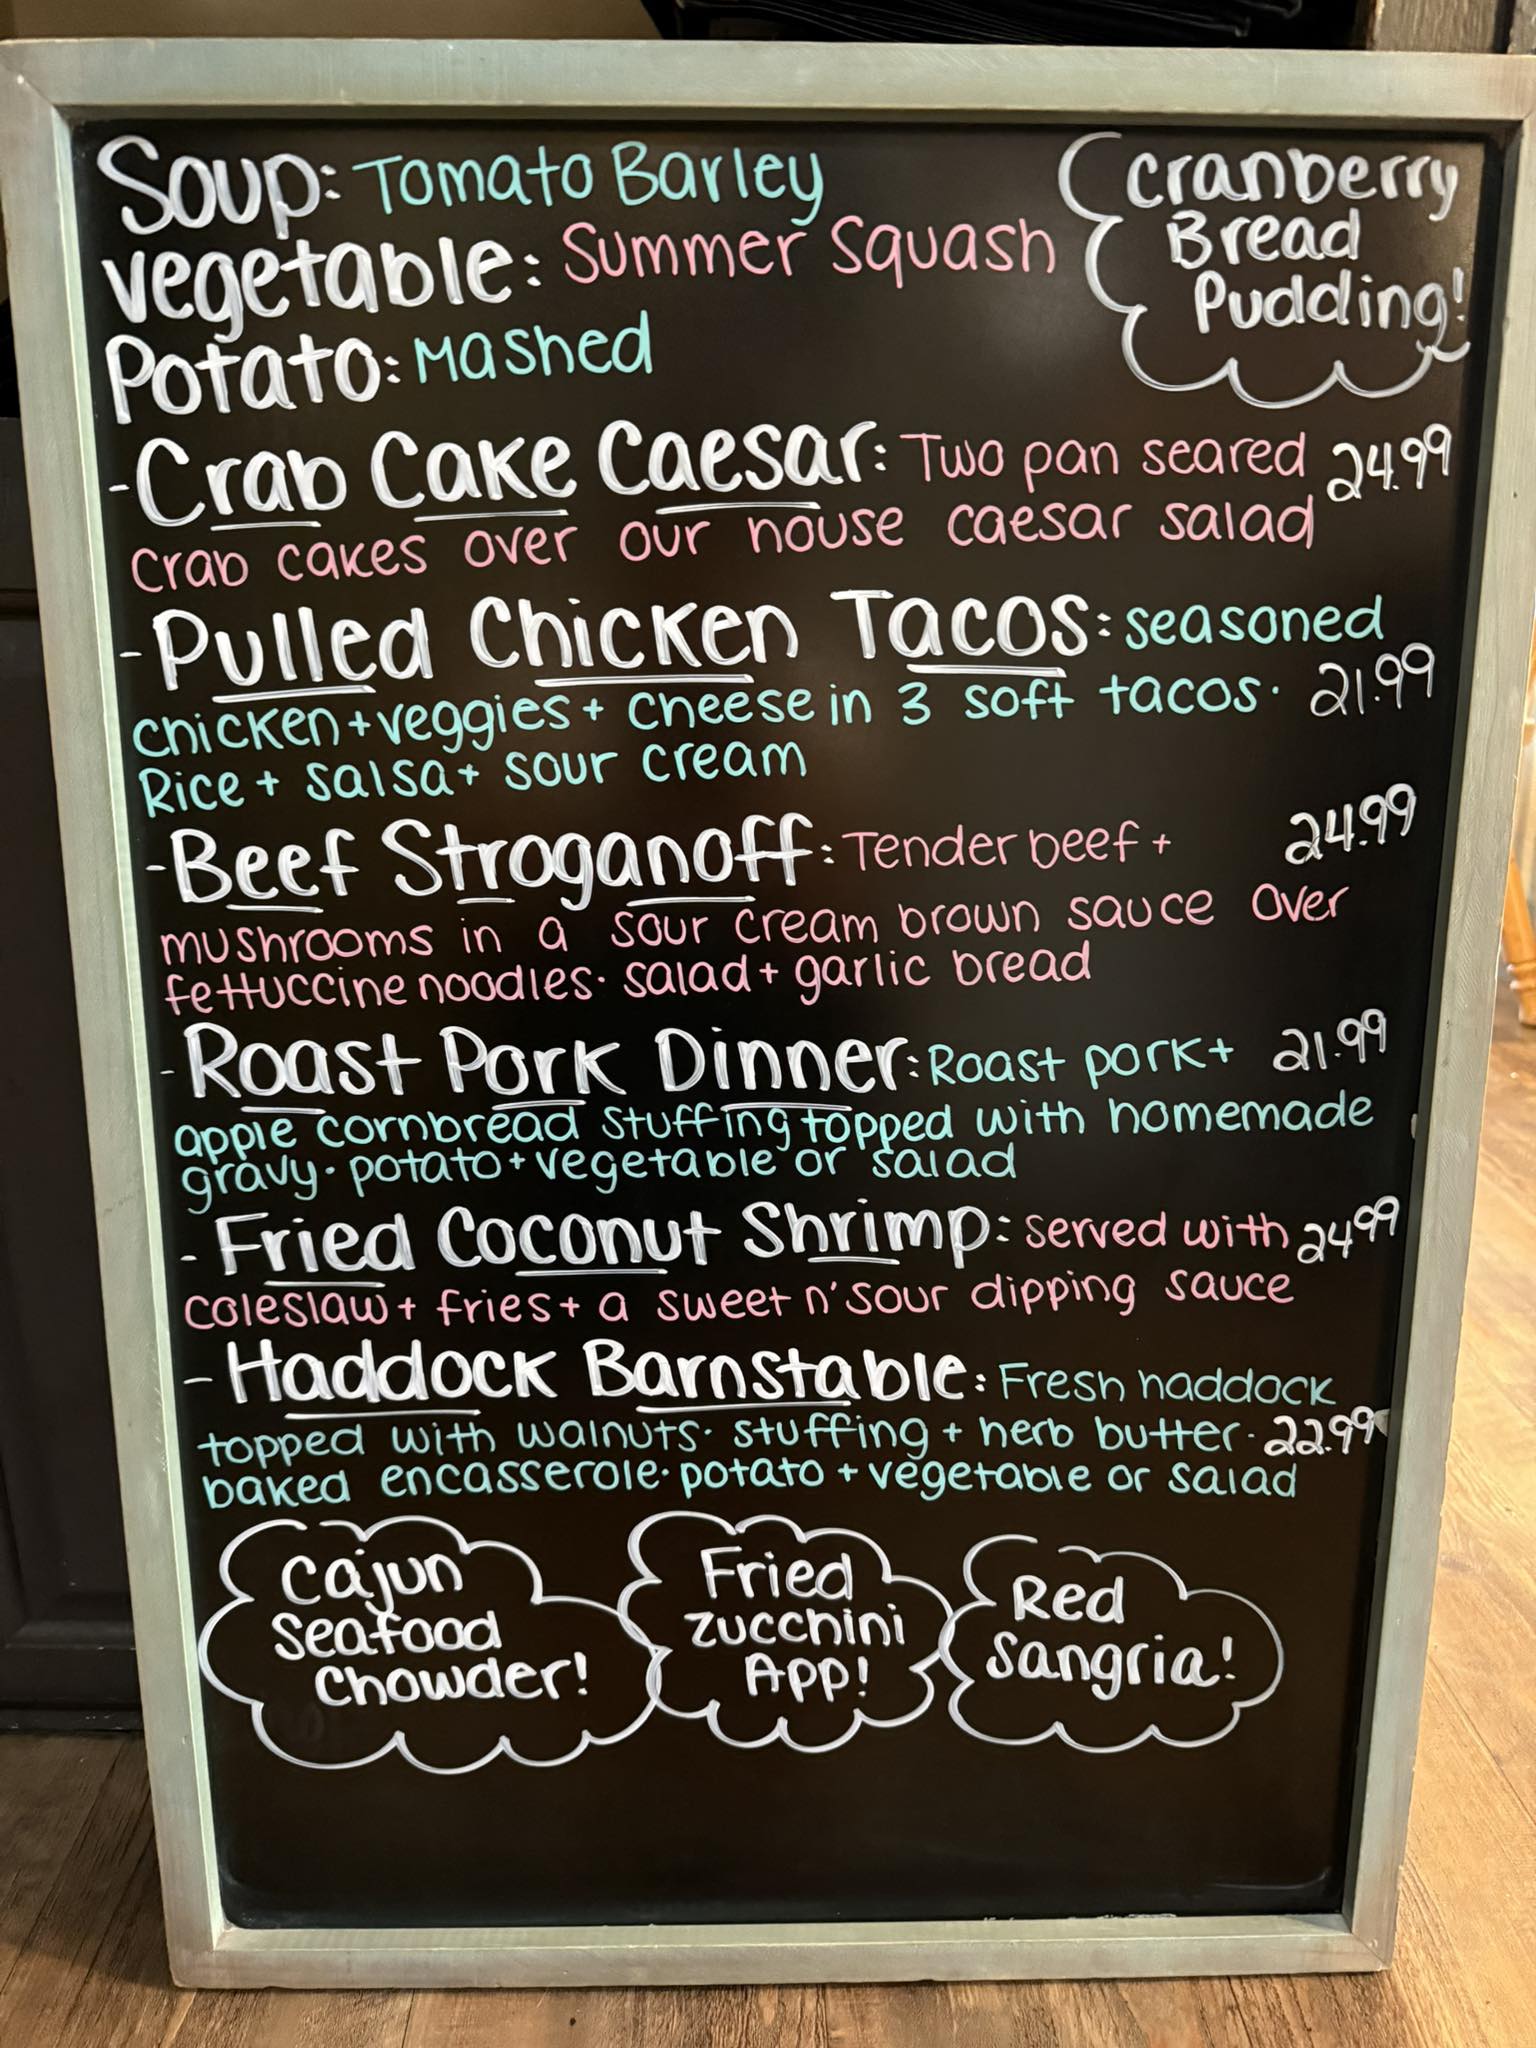 Soup: Tomato Barley
vegetable: Summer Squash
Potato: Mashed
Cranberry
Bread
Pudding!
- Crab Cake Caesar: Two pan seared 24.99
crab cakes over our house caesar salad
- Pulled Chicken Tacos: seasoned
chicken + veggies + cheese in 3 soft tacos. 21.99
Rice + salsa + sour cream
- Beef Stroganoff: Tender beef + 24.99
mushrooms in a sour cream brown sauce over
fettuccine noodles. salad + garlic bread
- Roast Pork Dinner: Roast pork + 21.99
apple cornbread stuffing topped with homemade
gravy. potato + vegetable or salad
- Fried Coconut Shrimp: served with 24.99
coleslaw + fries + a sweet n' sour dipping sauce
- Haddock Barnstable: Fresh haddock
topped with walnuts. stuffing + herb butter. 22.99
baked encasserole. potato + vegetable or salad
Cajun
Seafood
Chowder!
Fried
Zucchini
App!
Red
Sangria!